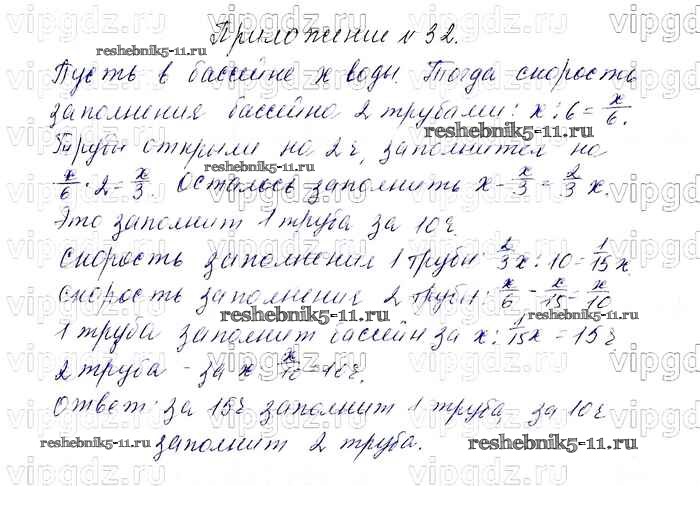 Приложение № 32.
Пусть в бассейне x воды. Тогда скорость
заполнения бассейна 2 трубами: x : 6 = x/6.
Трубы открыли на 2 ч, заполнится на
x/6 · 2 = x/3. Осталось заполнить x - x/3 = 2/3 x.
Это заполнит 1 труба за 10 ч.
Скорость заполнения 1 трубы: 2/3 x : 10 = 1/15 x.
Скорость заполнения 2 трубы: x/6 - x/15 = x/10
1 труба заполнит бассейн за x : 1/15 x = 15 ч
2 труба - за x : x/10 = 10 ч.
Ответ: за 15 ч заполнит 1 труба, за 10 ч
заполнит 2 труба.
reshebnik5-11.ru
reshebnik5-11.ru
reshebnik5-11.ru
reshebnik5-11.ru
reshebnik5-11.ru
reshebnik5-11.ru
reshebnik5-11.ru
vipgdz.ru